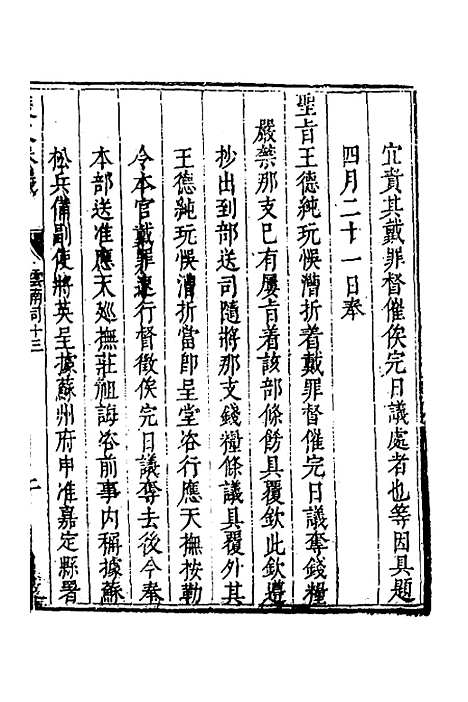 宜責其戴罪督催俟完日議處者也等因具題
四月二十一日奉
聖旨王德純玩悞漕折着戴罪督催完日議奪錢糧
嚴禁那支已有屢旨着該部條飭具覆欽此欽遵
抄出到部送司隨將那支錢糧條議具覆外其
王德純玩悞漕折當即呈堂咨行應天撫按勒
令本官戴罪速行督徵俟完日議奪去後今奉
本部送准應天巡撫莊祖誨咨前事內稱據蘇
松兵備副使蔣英呈據蘇州府申准嘉定縣署
雲南司十三